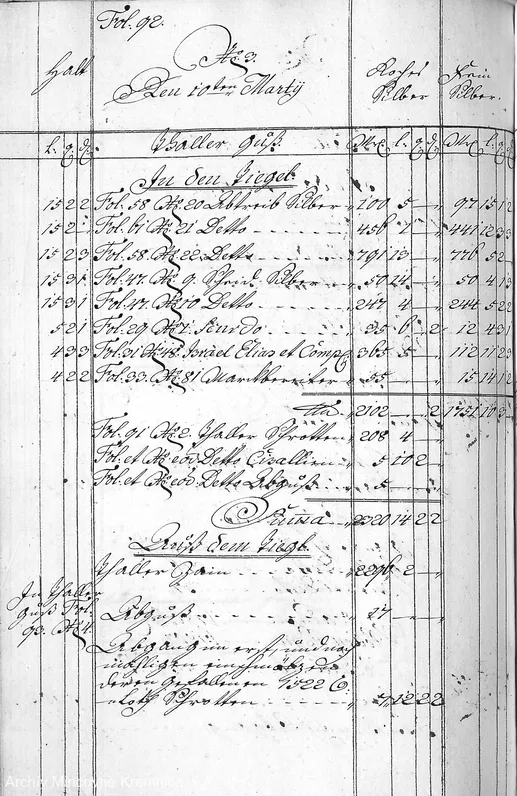 Fol. 92.
No. 3.
Halt
Den 10ten Marty
Roches Silber
Fein Silber.
l. q. d. Thaller guß. Mk. l. q. d. Mk. l. q. d.
In den Tiegel.
15 2 2 Fol. 58 No. 20 Abtreib Silber 100 5 - - 97 15 1 2
15 2 - Fol. 61 No. 21 Detto 456 7 - - 441 12 3 3
15 2 3 Fol. 58. No. 22. Detto 791 13 - - 776 5 2
15 3 1 Fol. 47. No. 9. Scheid Silber 50 14 - - 50 4 1 3
15 3 1 Fol. 47. No. 10 Detto 247 4 - - 244 5 2 2
5 2 1 Fol. 29 No. 1. 35 6 - 2 12 4 3 1
4 3 3 Fol. 31 No. 48. Israel Elias et Comp. 365 5 - - 112 11 2 3
4 2 2 Fol. 33. No. 81 55 - - - 15 14 1 2
2102 - - 2 1751 10 3 -
Fol. 91 No. 2. Thaller Schrotten 208 4 - -
Fol. et No. eod. Detto Cisallien 5 10 2
Fol. et No. eod. Detto Abguß 5 - -
Summa 2320 14 2 2
Auß dem Tiegl.
Thaller Zain 2296 2 - -
In Thaller
guß Fol.
93. No. 4.
Abguß 17 - - -
Abgang im erst, und noch
mahligen einschmöltzen
deren gefallenen 1522
Loth Schrotten 7 12 2 2
Archív Mincovne Kremnica